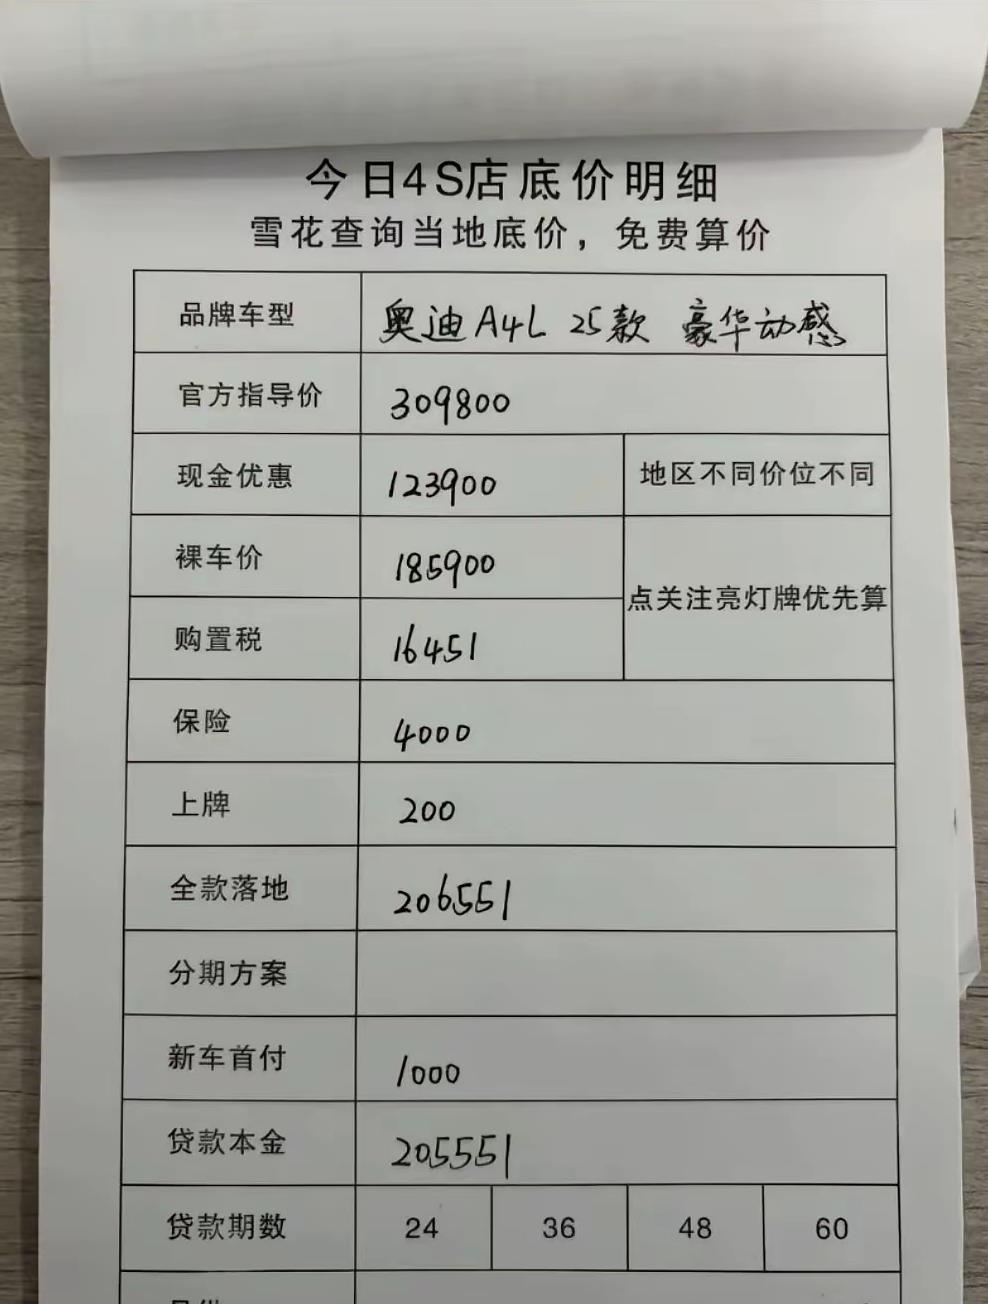 今日4S店底价明细
雪花查询当地底价，免费算价
品牌车型 奥迪A4L 25款 豪华动感
官方指导价 309800
现金优惠 123900 地区不同价位不同
裸车价 185900
点关注亮灯牌优先算
购置税 16451
保险 4000
上牌 200
全款落地 206551
分期方案
新车首付 1000
贷款本金 205551
贷款期数 24 36 48 60